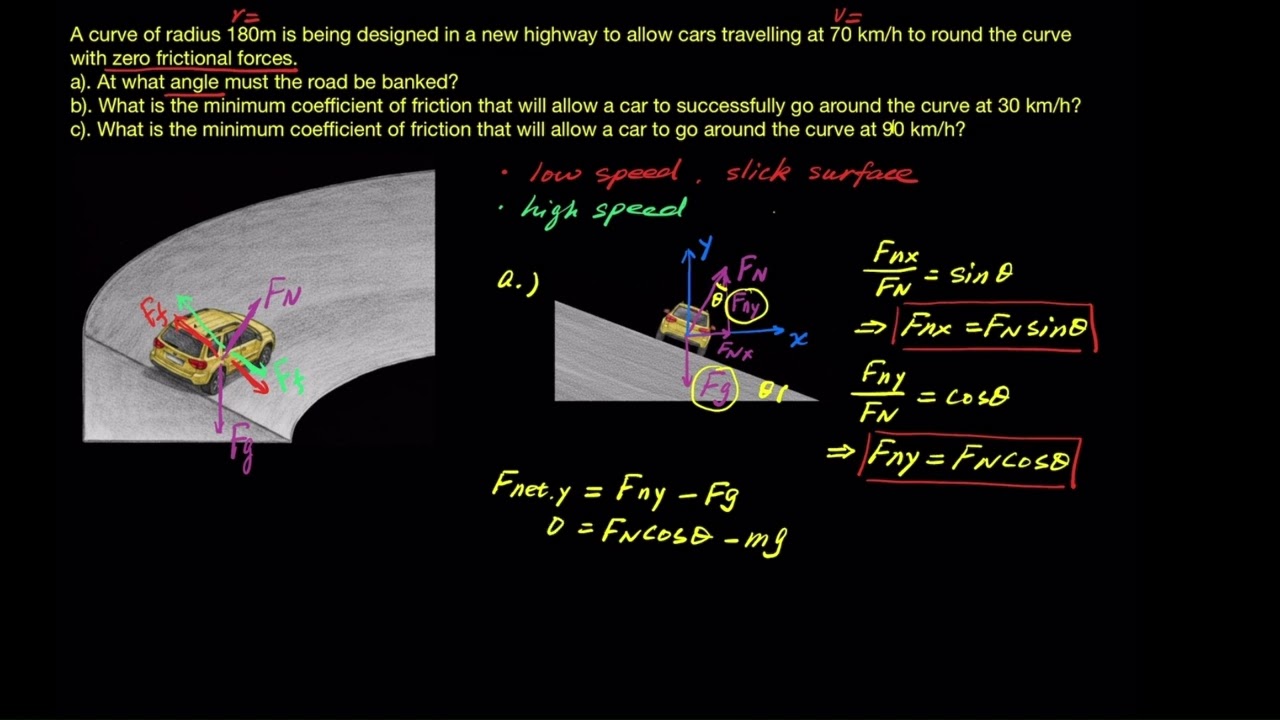 r=
v=
A curve of radius 180m is being designed in a new highway to allow cars travelling at 70 km/h to round the curve
with zero frictional forces.
a). At what angle must the road be banked?
b). What is the minimum coefficient of friction that will allow a car to successfully go around the curve at 30 km/h?
c). What is the minimum coefficient of friction that will allow a car to go around the curve at 90 km/h?
· low speed, slick surface
· high speed
a.)
y
FN
θ
Fny
x
FNx
Fg
θ
FN
Ff
Ff
Fg
Fnx / FN = sinθ
⇒ Fnx = FN sinθ
Fny / FN = cosθ
⇒ Fny = FN cosθ
Fnet.y = Fny − Fg
0 = FN cosθ − mg